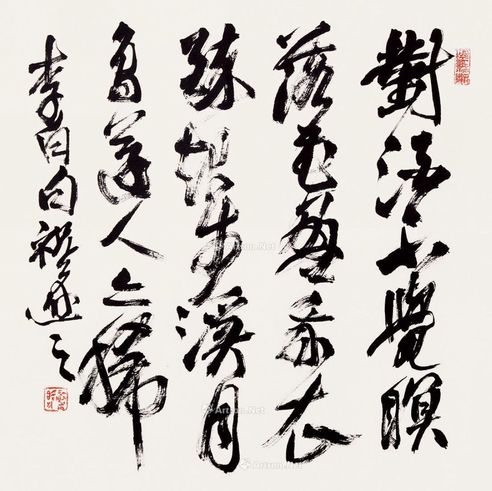 對酒不覺暝
落花盈我衣
醉起步溪月
鳥還人亦稀
李白句祝遂之
Artron.Net